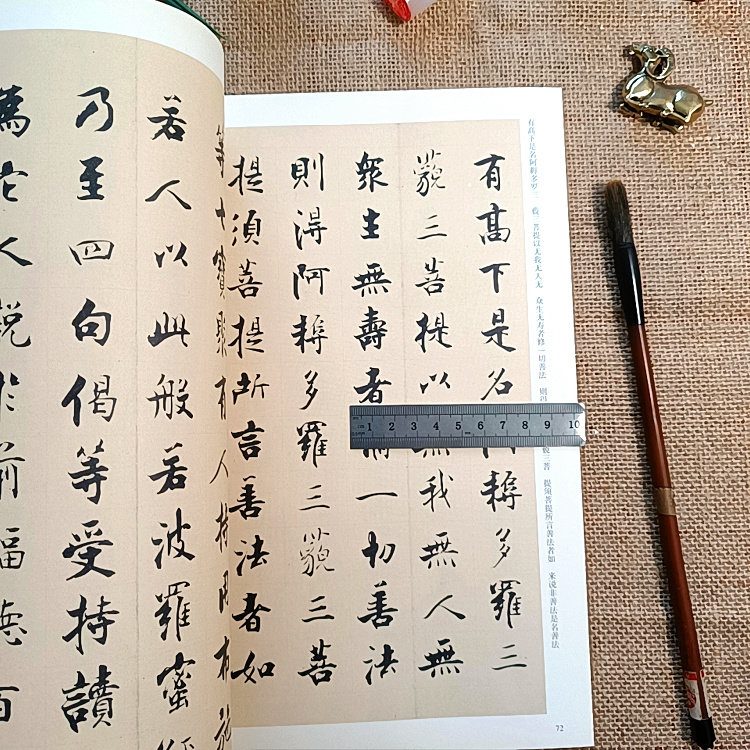 有高下是名阿耨多罗 藐三菩提以无我无人无 众生无寿者修一切善法 则 藐三菩 提须菩提所言善法者如 来说非善法是名善法
有髙下是名 耨多羅三
藐三菩提以無我無人無
衆生無壽者 一切善法
則得阿耨多羅三藐三菩
提須菩提所言善法者如
等七寶聚有人持用布施
若人以此般若波羅蜜經
乃至四句偈等受持讀
為他人說於前福德百
cm 1 2 3 4 5 6 7 8 9 10
72